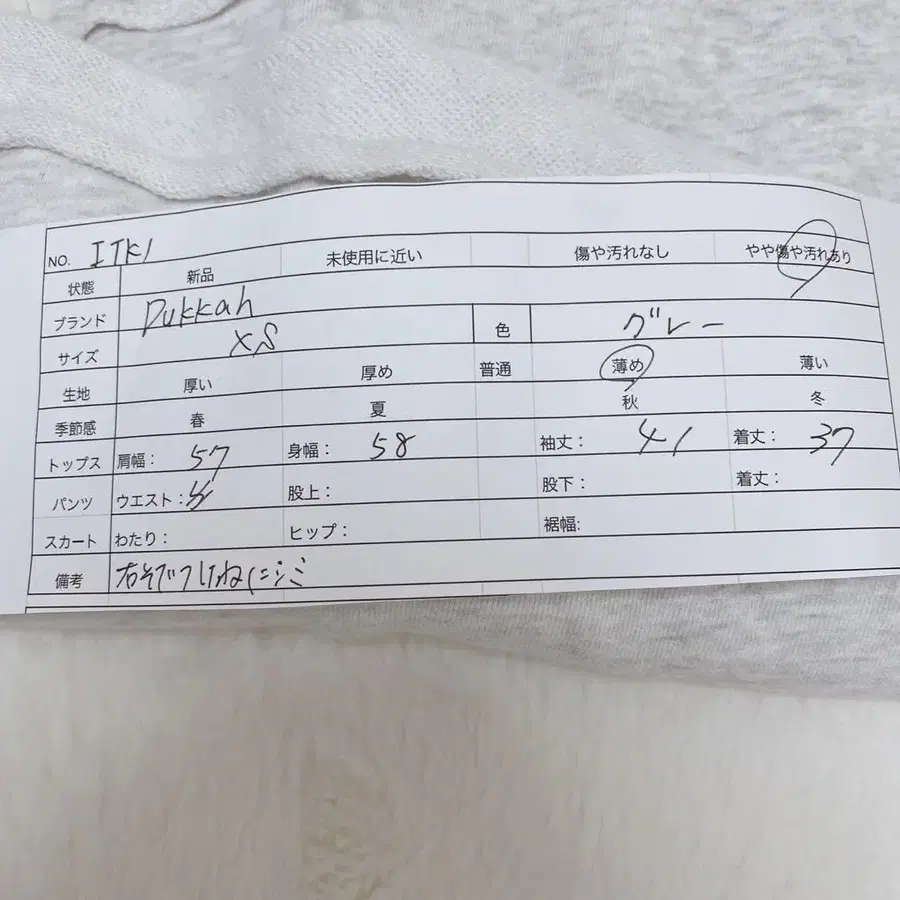 NO. ITK1
状態 新品 未使用に近い 傷や汚れなし やや傷や汚れあり
ブランド Dukkah
サイズ XS 色 グレー
生地 厚い 厚め 普通 薄め 薄い
季節感 春 夏 秋 冬
トップス 肩幅： 57 身幅： 58 袖丈： 41 着丈： 37
パンツ ウエスト： 股上： 股下： 着丈：
スカート わたり： ヒップ： 裾幅:
備考 右そでつけねにシミ